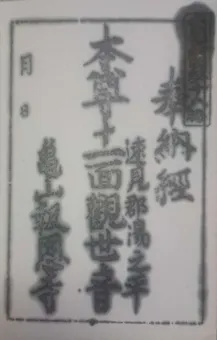 奉納經
速見郡湯之平
本尊十一面觀世音
龜山報恩寺
月 日